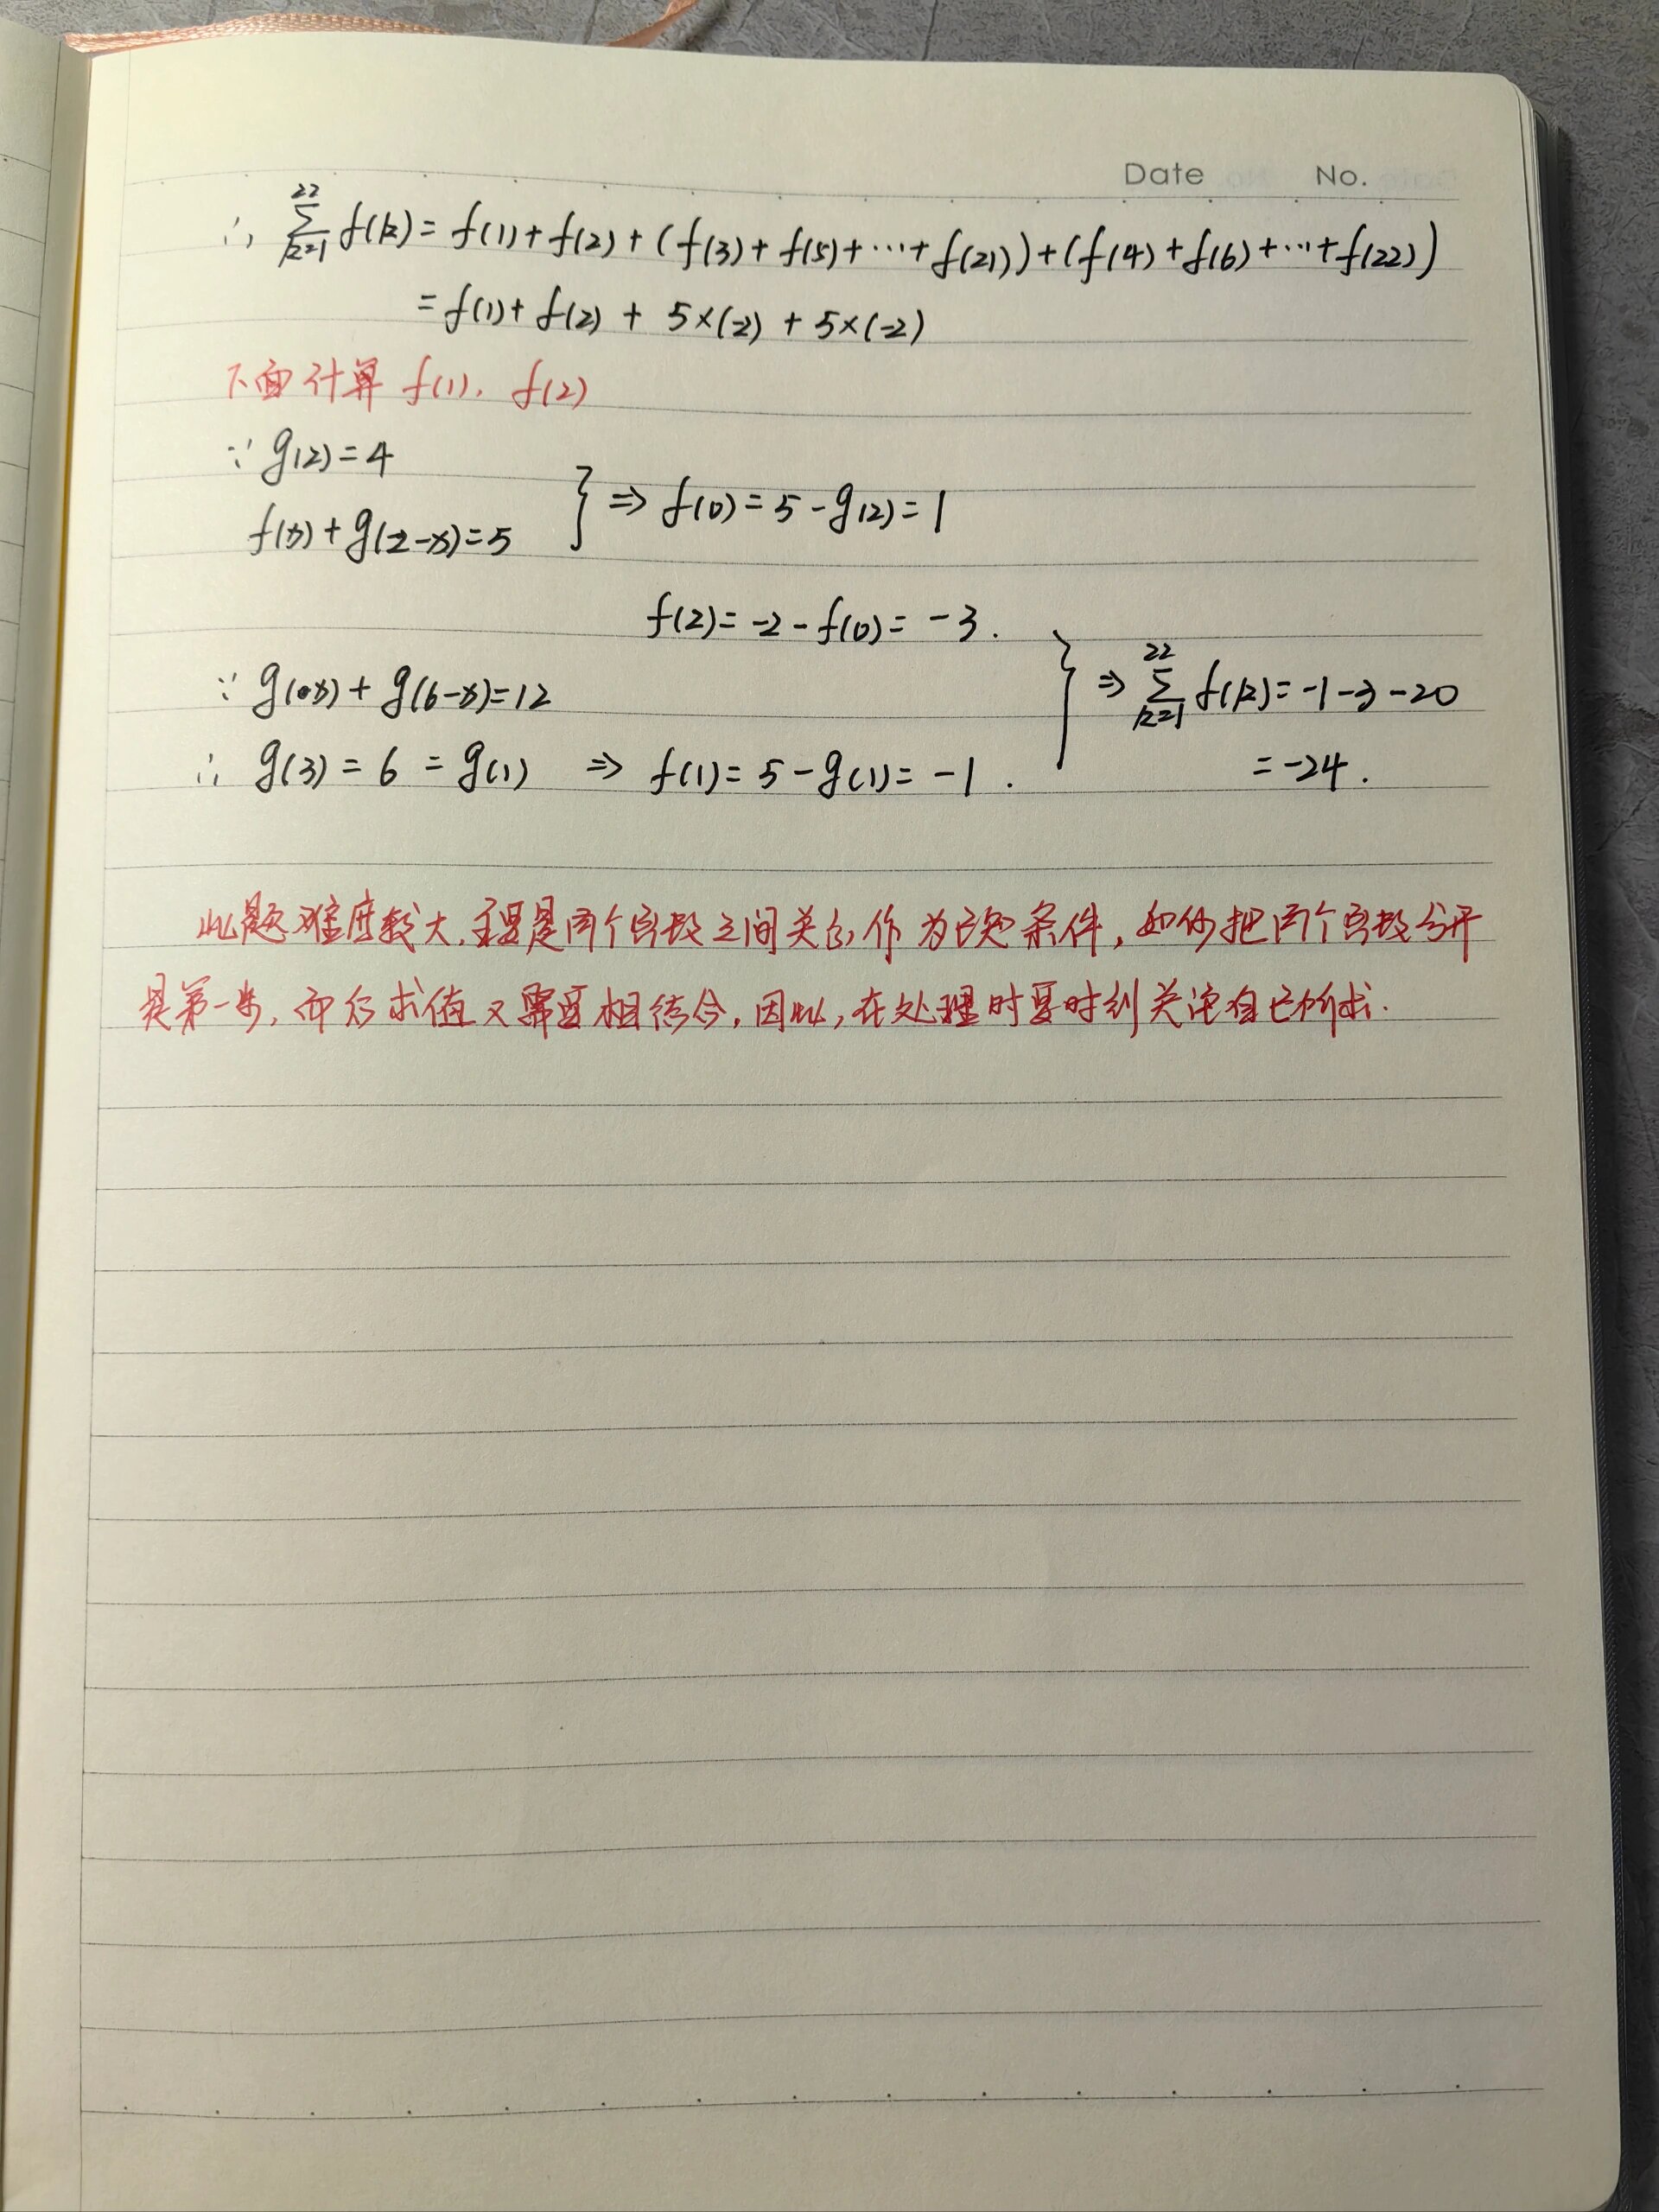 Date No.
∴ ∑_{k=1}^{22} f(k) = f(1) + f(2) + (f(3) + f(5) + ⋯ + f(21)) + (f(4) + f(6) + ⋯ + f(22))
= f(1) + f(2) + 5×(-2) + 5×(-2)
下面计算 f(1), f(2)
∵ g(2) = 4
f(x) + g(2-x) = 5 } ⇒ f(0) = 5 - g(2) = 1
f(2) = -2 - f(0) = -3.
∵ g(x) + g(6-x) = 12
} ⇒ ∑_{k=1}^{22} f(k) = -1-3-20
∴ g(3) = 6 = g(1) ⇒ f(1) = 5 - g(1) = -1.
= -24.
此题难度较大,主要是两个函数之间关系作为已知条件,如何把两个函数分开
是第一步,而后求值又需要相结合,因此,在处理时要时刻关注自己所求.